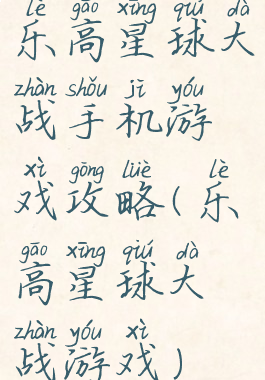 lè gāo xīng qiú dà
乐高星球大
zhàn shǒu jī yóu
战手机游
xì gōng lüè lè
戏攻略(乐
gāo xīng qiú dà
高星球大
zhàn yóu xì
战游戏)